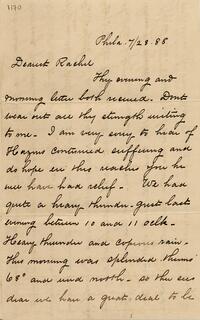 1170
Phila. 7/28.88
Dearest Rachel
Thy evening and
morning letter both received. Dont
wear out all thy strength writing
to me. I am very sorry to hear of
continued suffering and
do hope ere this reaches you he
will have had relief. We had
quite a heavy thunder gust last
evening between 10 and 11 oclk.
Heavy thunder and copious rain.
This morning was splendid
68° and wind north. so thee sees
dear we have a great deal to be